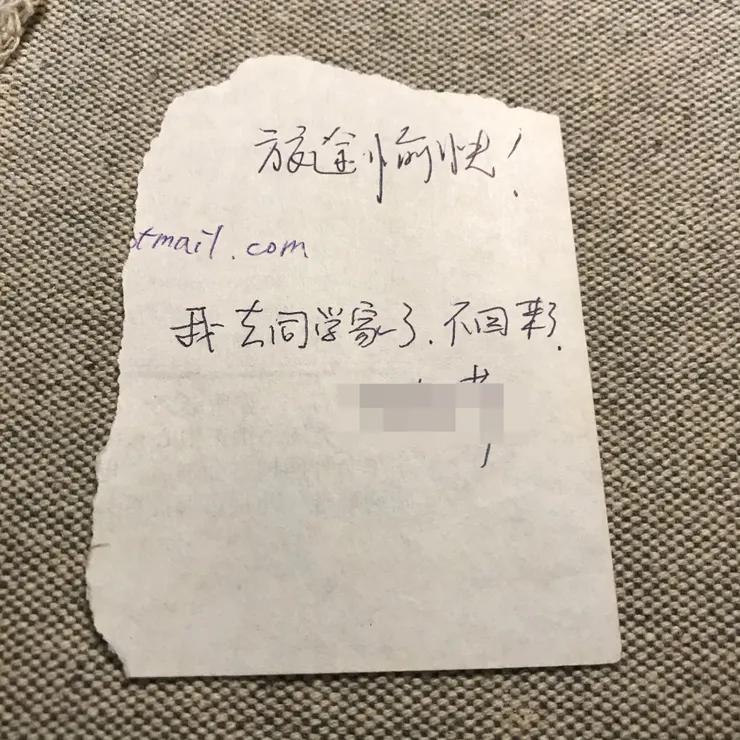 旅途愉快!
otmail.com
我去同学家了.不回来了.